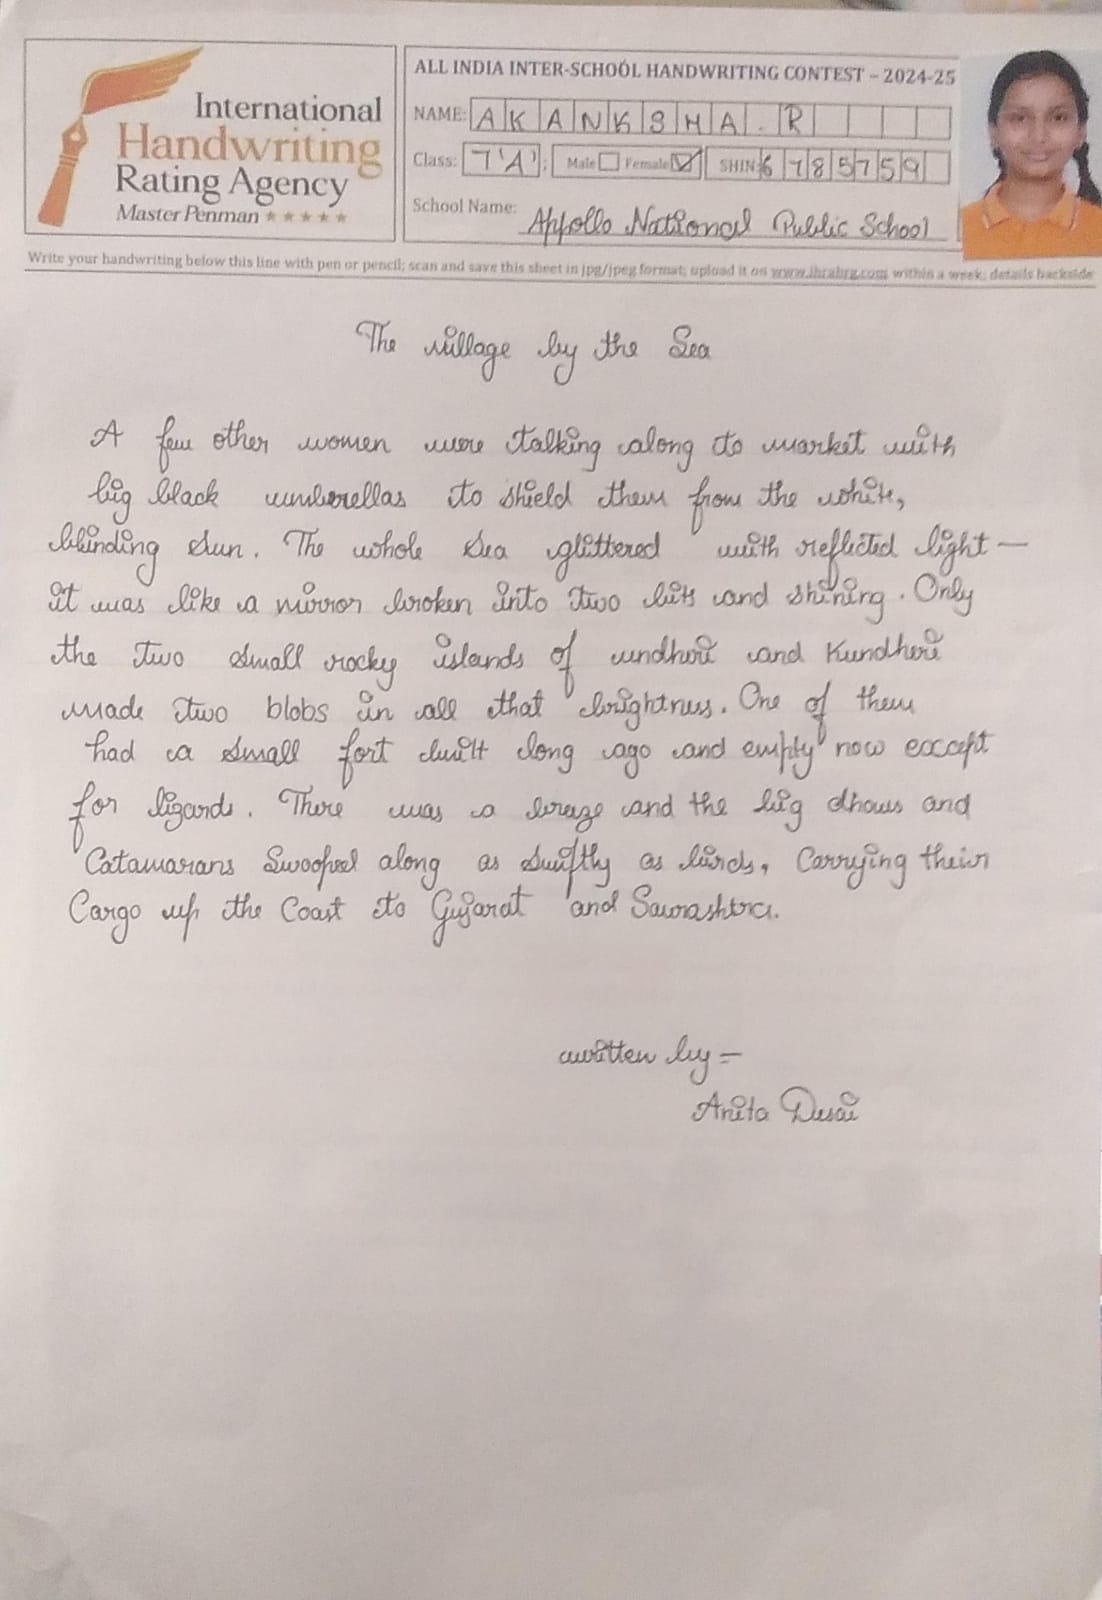 International
Handwriting
Rating Agency
Master Penman ★★★★★
ALL INDIA INTER-SCHOOL HANDWRITING CONTEST – 2024-25
NAME: AKANKSHA. R
Class: 7 'A' Male Female ☑ SHIN: 6785759
School Name: Appollo National Public School
Write your handwriting below this line with pen or pencil; scan and save this sheet in jpg/jpeg format; upload it on www.ihrahrg.com within a week; details backside
The village by the Sea
A few other women were talking along to market with
big black umberellas to shield them from the white,
blinding sun. The whole sea glittered with reflected light—
it was like a mirror broken into two bits and shining. Only
the two small rocky islands of undheri and Kundheri
made two blobs in all that brightness. One of them
had a small fort built long ago and empty now except
for lizards. There was a breeze and the big dhows and
Catamarans Swooped along as swiftly as birds, Carrying their
Cargo up the Coast to Gujarat and Saurashtra.
written by –
Anita Desai